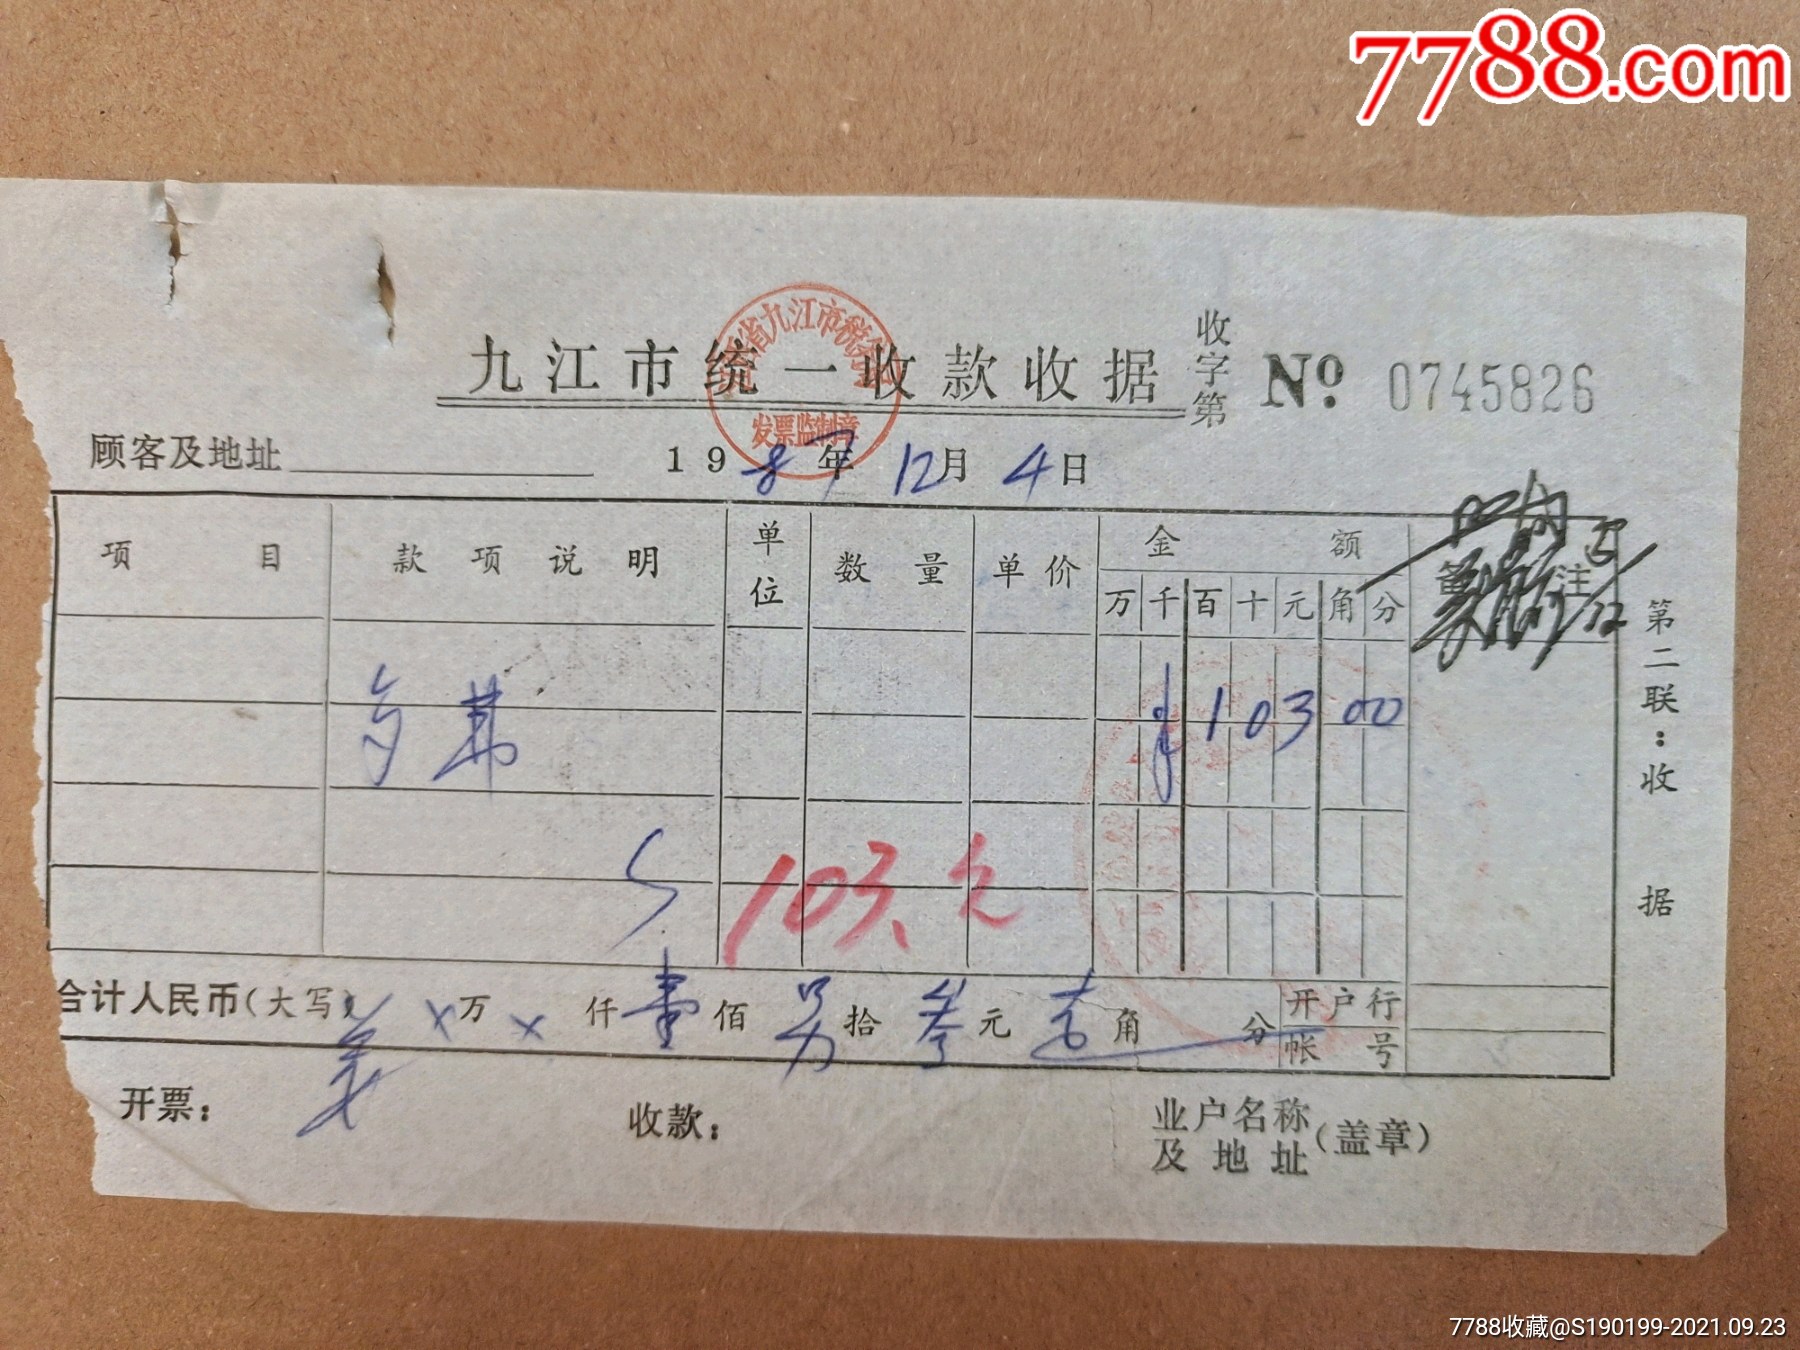 7788.com
江西省九江市税务局
发票监制章
九江市统一收款收据 收字第 № 0745826
顾客及地址 1987年12月4日
项目 款项说明 单位 数量 单价 金额 备注
万 千 百 十 元 角 分
¥ 1 0 3 0 0
103.元
合计人民币(大写) ×万 ×仟 壹佰 另拾 叁元 角 分 开户行
帐号
开票: 收款: 业户名称及地址(盖章)
第二联:收据
7788收藏@S190199-2021.09.23